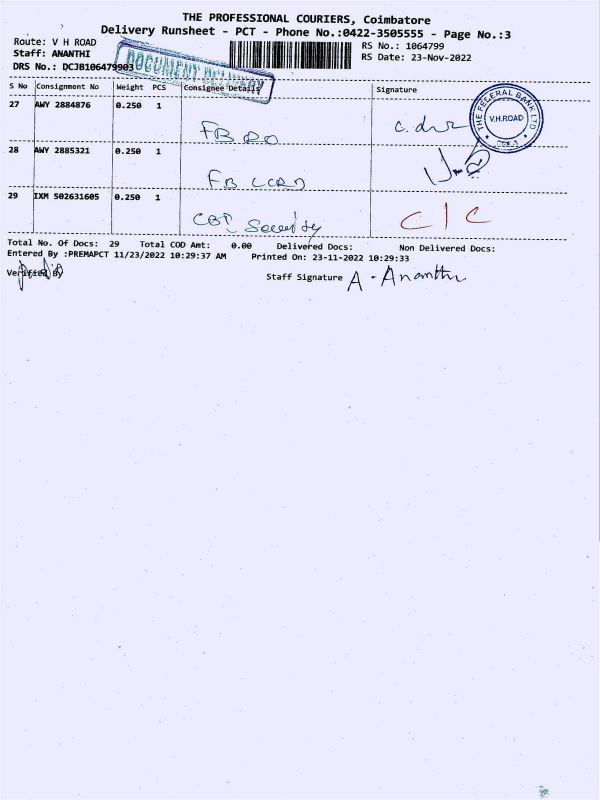 THE PROFESSIONAL COURIERS, Coimbatore
Delivery Runsheet - PCT - Phone No.:0422-3505555 - Page No.:3
Route: V H ROAD
RS No.: 1064799
Staff: ANANTHI
RS Date: 23-Nov-2022
DRS No.: DCJB106479903
DOCUMENT DELIVERY
S No Consignment No Weight PCS Consignee Details Signature
27 AWY 2884876 0.250 1
FB RO
THE FEDERAL BANK LTD
V.H.ROAD
28 AWY 2885321 0.250 1
FB LCRD
29 IXM 502631605 0.250 1
CBI Security C/C
Total No. Of Docs: 29 Total COD Amt: 0.00 Delivered Docs: Non Delivered Docs:
Entered By :PREMAPCT 11/23/2022 10:29:37 AM Printed On: 23-11-2022 10:29:33
Verified By
Staff Signature A - Ananthi